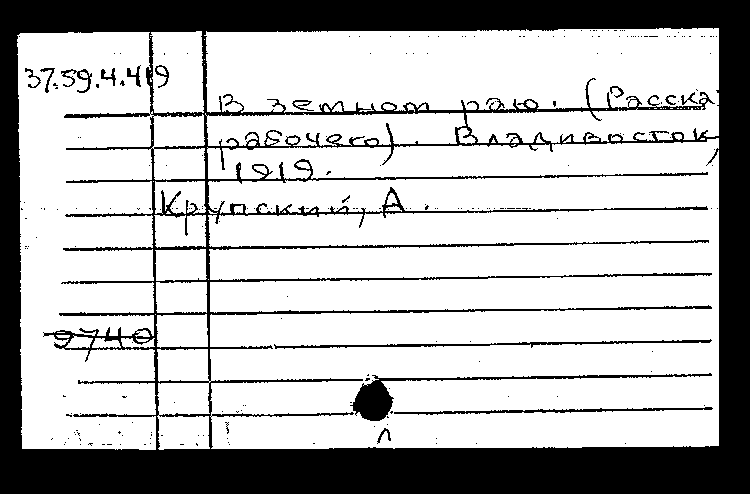 37.59.4.419
В земном раю. (Расска
рабочего). Владивосток,
1919.
Крупский, А.
9740